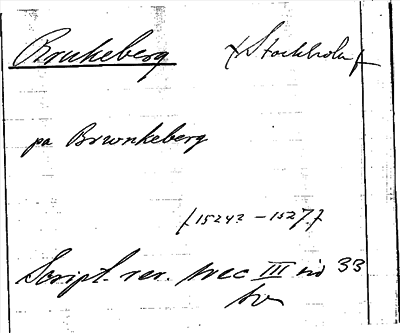 Brukeberg Stockholm
pa Brwnkeberg
(15242 - 1527)
Script. rer. svec III sid 33